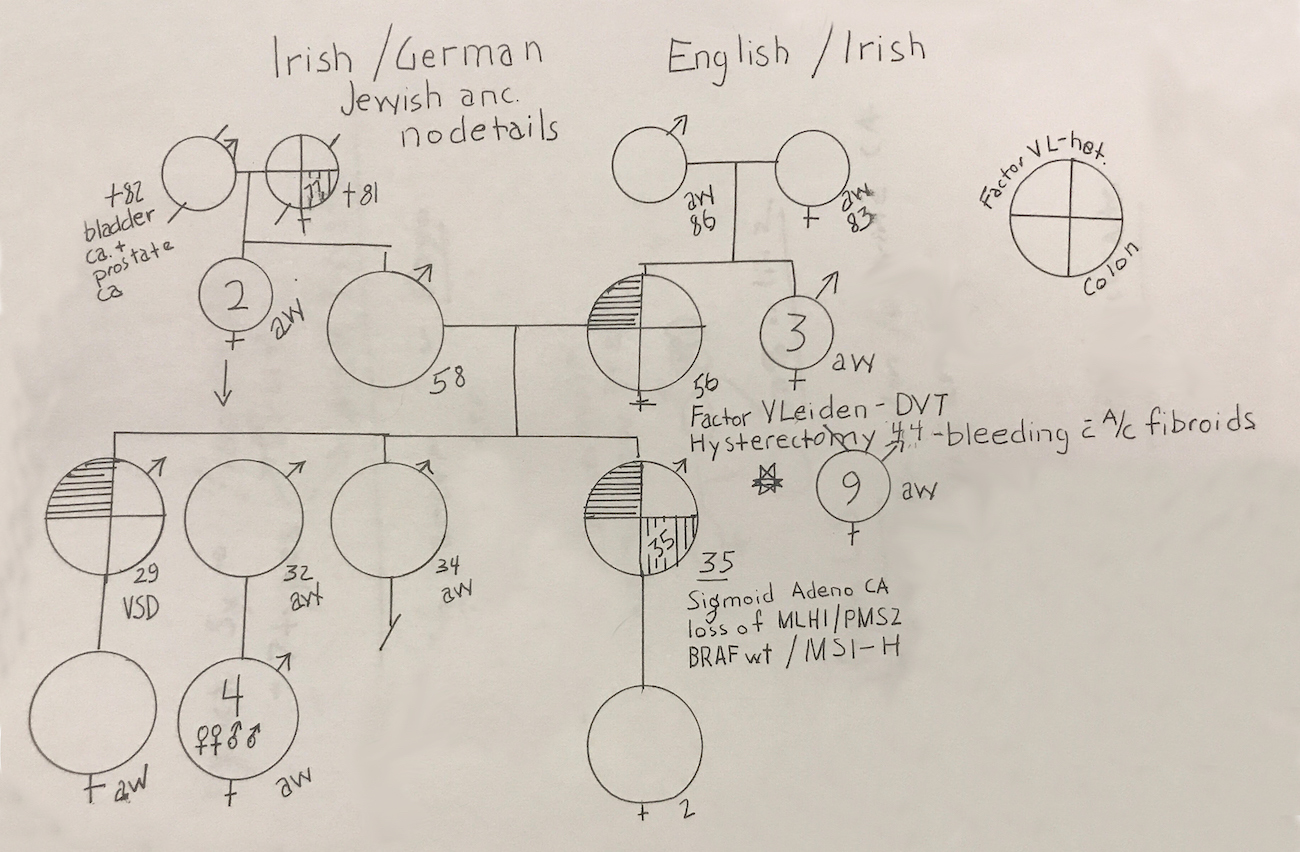 Irish / German
Jewish anc.
no details
English / Irish
Factor VL-het.
Colon
+82
bladder
ca. +
prostate
ca
77
+81
aw
86
aw
83
2
aw
58
56
3
aw
Factor V Leiden - DVT
Hysterectomy 44 - bleeding c̄ A/c fibroids
9
aw
29
VSD
32
aw
34
aw
35
35
Sigmoid Adeno CA
loss of MLH1/PMS2
BRAF wt / MSI-H
aw
4
♀♀♂♂
aw
2